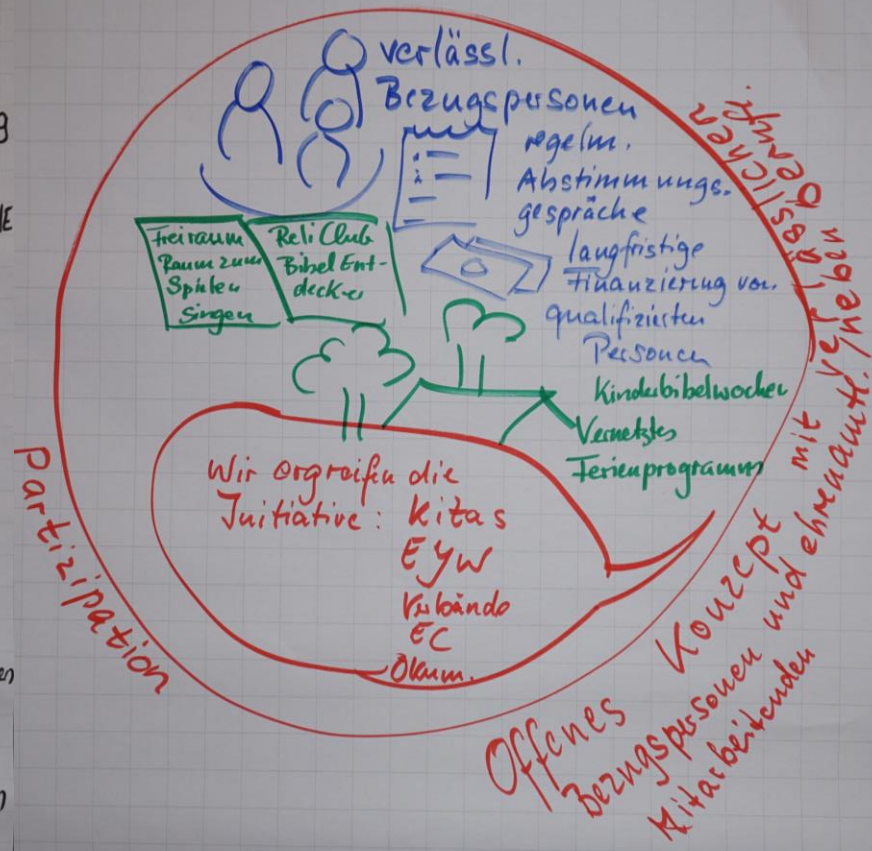 verlässl.
Bezugspersonen
regelm.
Abstimmungs-
gespräche
langfristige
Finanzierung von
qualifizierten
Personen
Freiraum
Raum zum
Spielen
Singen
Reli Club
Bibel Ent-
decker
Kinderbibelwochen
Vernetztes
Ferienprogramm
Wir ergreifen die
Initiative: Kitas
EJW
Verbände
EC
Ökum.
Partizipation
Offenes Konzept mit verlässlichen
Bezugspersonen und ehrenamtl./neben
Mitarbeitenden